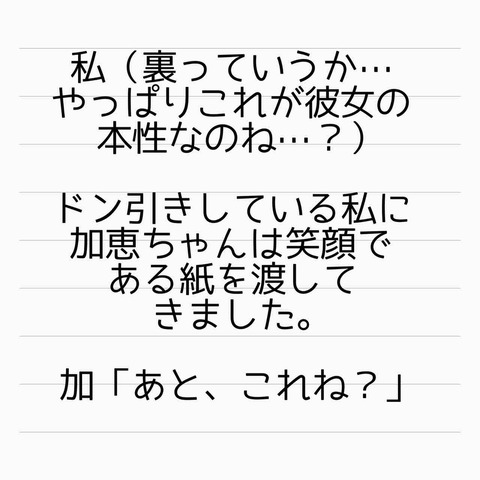 私（裏っていうか…
やっぱりこれが彼女の
本性なのね…？）
ドン引きしている私に
加恵ちゃんは笑顔で
ある紙を渡して
きました。
加「あと、これね？」